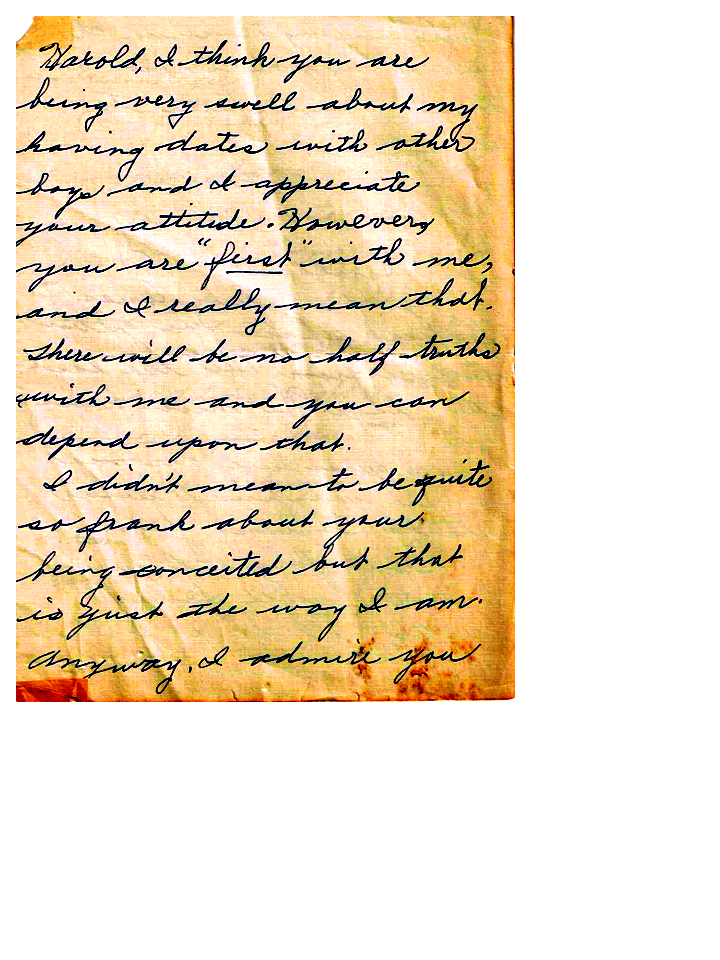 Harold, I think you are
being very swell about my
having dates with other
boys and I appreciate
your attitude. However,
you are "first" with me,
and I really mean that.
There will be no half truths
with me and you can
depend upon that.
I didn't mean to be quite
so frank about your
being conceited but that
is just the way I am.
Anyway, I admire you